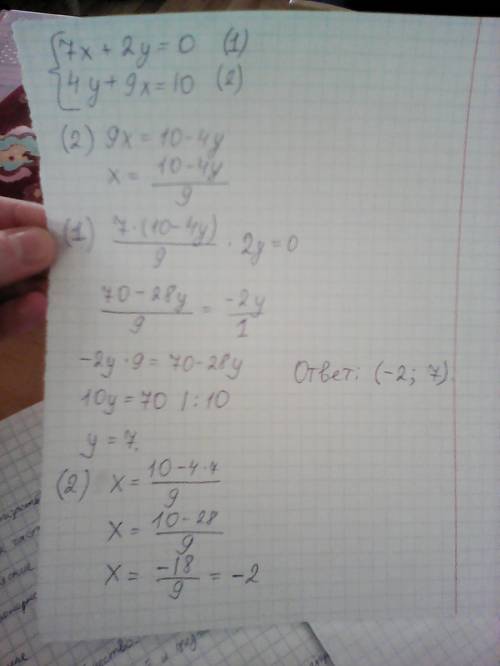 7x + 2y = 0 (1)
4y + 9x = 10 (2)
(2) 9x = 10 - 4y
x = \frac{10-4y}{9}
(1) \frac{7·(10-4y)}{9} · 2y = 0
\frac{70-28y}{9} = \frac{-2y}{1}
-2y·9 = 70-28y
Ответ: (-2; 7).
10y = 70 | :10
y = 7.
(2) x = \frac{10-4·7}{9}
x = \frac{10-28}{9}
x = \frac{-18}{9} = -2